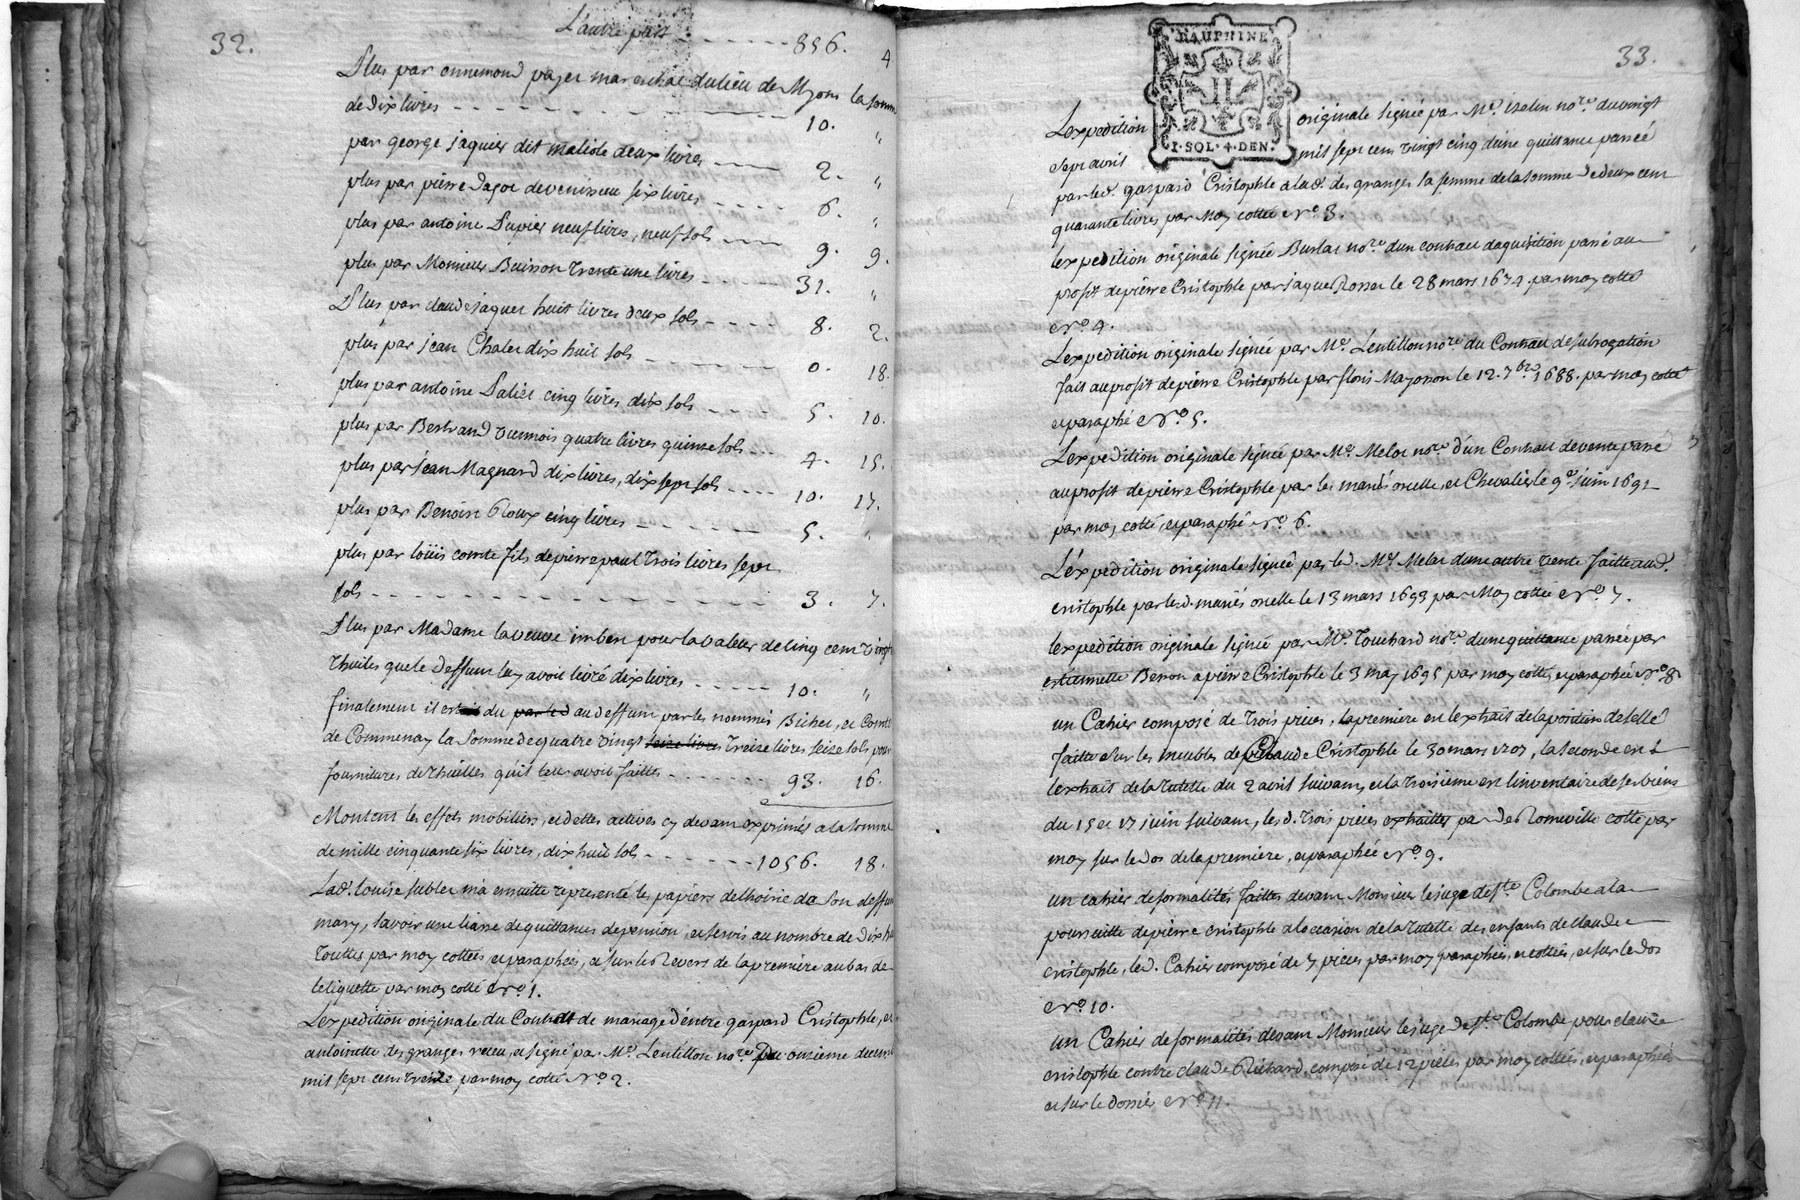 32.
L'autre part - - - - - - - 856. 4
Plus par onnemond payet mareschal du lieu de Myons la somme
de dix livres - - - - - - 10. "
par george jaquier dit maliole deux livres - - 2. "
plus par pierre dagot de venissieu six livres - - - - 6. "
plus par antoine Dupier neuf livres, neuf sols - - 9. 9.
plus par Monsieur Buisson trente une livres - - - 31. "
Plus par claude jaquet huit livres deux sols - - - - 8. 2.
plus par jean Chalet dix huit sols - - - - - 0. 18.
plus par antoine Paliet cinq livres, dix sols - - - 5. 10.
plus par Bertrand viennois quatre livres quinze sols - - 4. 15.
plus par jean Magnard dix livres, dix sept sols - - - - 10. 17.
plus par Benoist Roux cinq livres - - - - - 5. "
plus par loüis comte fils de pierre paul trois livres sept
sols - - - - - - - - - - - - - 3. 7.
Plus par Madame la veuve imbert pour la valeur de cinq cent vingt
thuiles que le deffunt luy avoit livré dix livres - - - - - 10. "
finalement il est du par led au deffunt par les nommés Bichet, et Comte
de Commenay la Somme de quatre vingt seize livres treize livres seize sols pour
fournitures de thuilles qu'il leur avoit faittes - - - - - - 93. 16.
Montent les effets mobiliers, et dettes actives cy devant exprimés a la somme
de mille cinquante six livres, dix huit sols - - - - - - 1056. 18.
Lad. louise sublet m'a ensuitte representé les papiers de l'hoirie de Son deffunt
mary, savoir une liasse de quittances de pension, et servis au nombre de dix h
touttes par moy cottées et paraphées, et sur le Revers de la premiere au bas de
letiquette par moy cotté N.º 1.
L'expedition originale du Contrat de mariage d'entre gaspard Cristophle, et
antoinette des granges receu, et signé par M.e Lentillon no.re Du onzieme decem
mil sept cent treize par moy cotté N.º 2.
33.
DAUPHINE
II
I·SOL·4·DEN.
L'expedition originale signée par M.e izalin no.re du vingt
sept avril mil sept cent vingt cinq d'une quittance passée
par led. gaspard Cristophle a lad. des granges sa femme de la somme de deux cent
quarante livres par Moy cottée N.º 3.
lexpedition originale signée Burlat no.re d'un contrat d'aquisition passé au
profit de pierre Cristophle par jaque Rosset le 28 mars 1674. par moy cotté
N.º 4.
L'expedition originale signée par M.e Lentillon no.re du Contrat de subrogation
fait au profit de pierre Cristophle par floris Mayosson le 12. 7bre 1688. par moy cotté
et paraphé N.º 5.
L'expedition originale signée par M.e Melat no.re d'un Contrat de vente passé
au profit de pierre Cristophle par les mariés oncelle, et Chevalier le 9.e juin 1691
par moy cotté, et paraphé N.º 6.
L'expedition originale signée par led. M.e Melat d'une autre vente faitte aud.
cristophle par lesd. mariés oncelle le 13 mars 1693 par Moy cottée N.º 7.
lexpedition originale signée par M.e Touchard no.re d'une quittance passée par
estiennette Benon a pierre Cristophle le 3 may 1695 par moy cottée, et paraphée N.º 8
un Cahier composé de trois pieces, la premiere est lextrait de la position de scellé
faitte sur les meubles de Claude Cristophle le 30 mars 1707, la seconde est
lextrait de la tutelle du 2 avril suivant, et la troisieme est linventaire de ses biens
du 15 et 17 juin suivant, lesd. trois pieces extraittes par de Romeville cotté par
moy sur le dos de la premiere, et paraphée N.º 9.
un cahier de formalités faittes devant Monsieur le juge de s.te Colombe a la
poursuitte de pierre cristophle a loccasion de la tutelle des enfants de Claude
cristophle, led. Cahier composé de 7 pieces par moy paraphées, et cottées, et sur le dos
N.º 10.
un Cahier de formalités devant Monsieur le juge de s.te Colombe pour claude
cristophle contre claude Richard, composé de 12 pieces par moy cottées, et paraphées
et sur le dossier N.º 11.